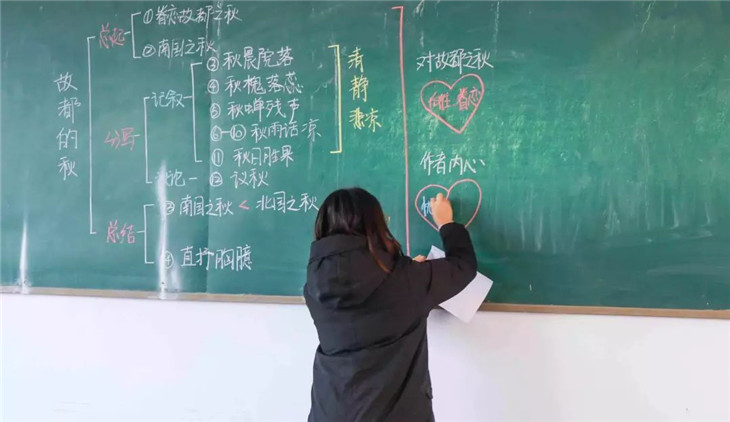 故都的秋
总起
①眷恋故都之秋
②南国之秋
分写
记叙
③秋晨院落
④秋槐落蕊
⑤秋蝉残声
⑥—⑩秋雨话凉
⑪秋日胜果
议论—⑫议秋
总结
⑬南国之秋 < 北国之秋
④直抒胸臆
清静悲凉
对故都之秋
向往 眷恋
作者内心